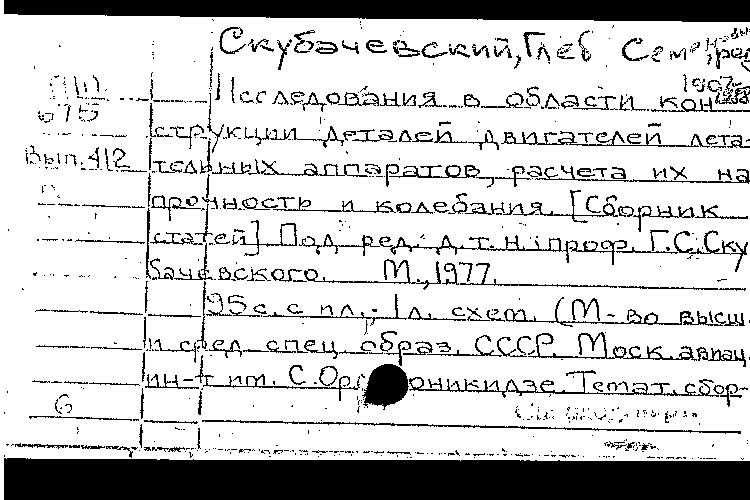 Скубачевский, Глеб Семен
1907-
П 111
675
Вып. 412
Исследования в области кон-
струкции деталей двигателей лета-
тельных аппаратов, расчета их на
прочность и колебания. [Сборник
статей] Под ред. д.т.н. проф. Г.С. Ску
бачевского. М., 1977.
95 с. с ил.; 1 л. схем. (М-во высш.
и сред. спец образ. СССР. Моск. авиац.
ин-т им. С. Орджоникидзе. Темат. сбор-
6